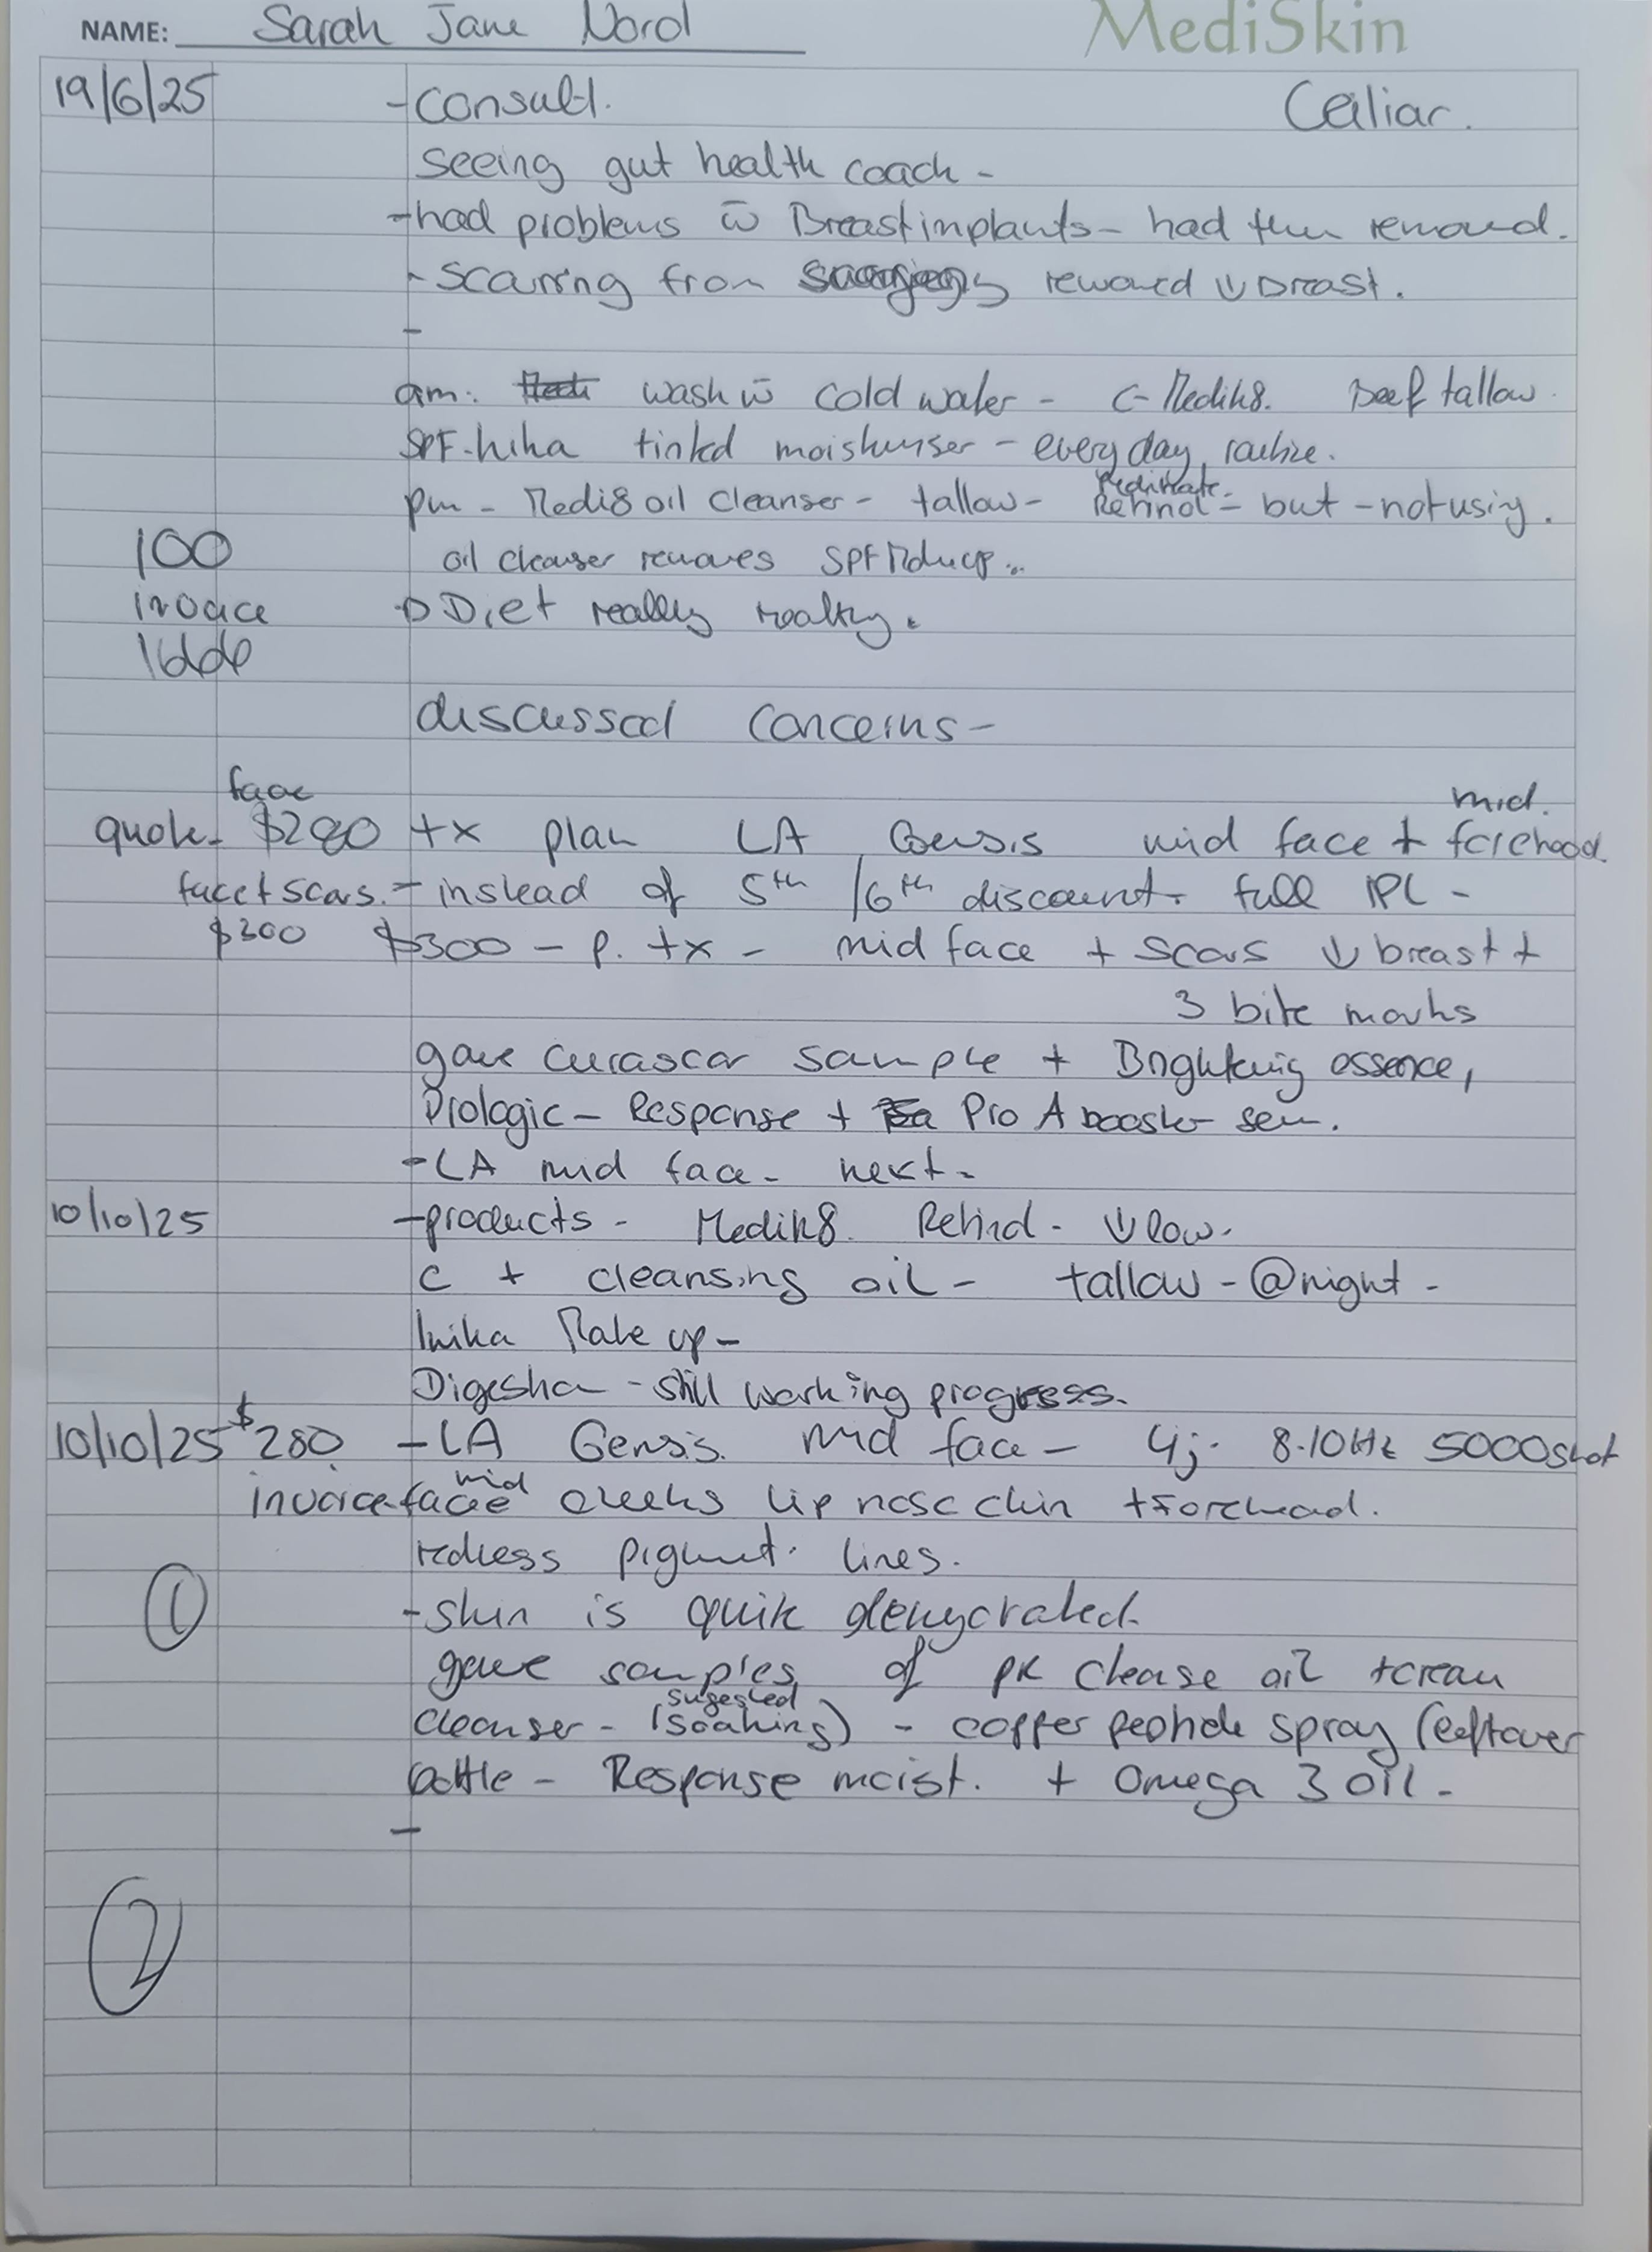 NAME: Sarah Jane Nord
MediSkin
19/6/25 - consult. Ceiliac.
seeing gut health coach -
- had problems w̄ Breast implants - had them removed.
- Scarring from removed ↓ breast.
-
am: wash w̄ cold water - C - Medik8. Beef tallow.
SPF - tinted moisturiser - every day, routine.
pm - Medi8 oil cleanser - tallow - Retinol - but - not using.
100 oil cleanser removes SPF Makeup..
invoice → Diet really healthy.
discussed concerns -
face mid.
quote - $280 tx plan LA Genesis mid face + forehead.
face + scars. - instead of 5th / 6th discount - full IPL -
$300 $300 - p. tx - mid face + scars ↓ breast +
3 bite marks
gave curascar sample + Brightening essence,
Prologic - Response + Pro A booster serum.
- LA mid face - next -
10/10/25 - products - Medik8. Retinol - ↓ low.
C + cleansing oil - tallow - @night -
Inika Make up -
Digestion - still working progress.
10/10/25 $280 - LA Gensis. mid face - 4j. 8-10Hz 5000shot
mid
invoice face cheeks lip nose chin + Forehead.
redness pigment. lines.
① - skin is quik dehydrated.
gave samples of PK Clease oil + cream
sugested
cleanser - (soaking) - copper peptide spray (leftover
bottle - Response moist. + Omega 3 oil -
-
②